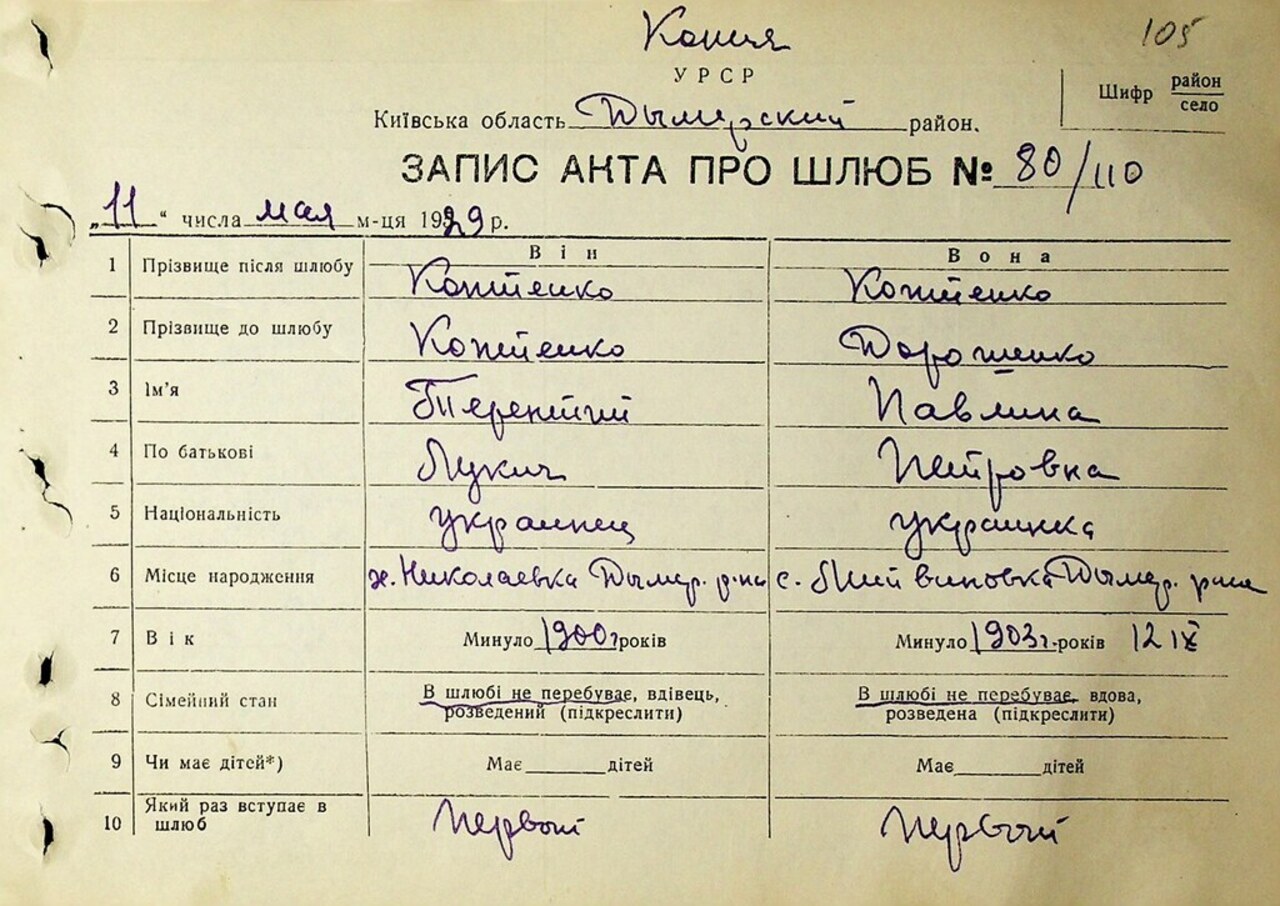 Копия
105
УРСР
Шифр район
село
Київська область Дымерский район.
ЗАПИС АКТА ПРО ШЛЮБ № 80/110
„11“ числа мая м-ця 1929 р.
Він Вона
1 Прізвище після шлюбу Коптенко Коптенко
2 Прізвище до шлюбу Коптенко Дорошенко
3 Ім'я Терентий Павлина
4 По батькові Лукич Петровка
5 Національність украинец украинка
6 Місце народження х. Николаевка Дымер. р-на с. Дымер. р-на
7 Вік Минуло 1900 г років Минуло 1903 г. років 12 IX
8 Сімейний стан В шлюбі не перебуває, вдівець, В шлюбі не перебуває, вдова,
розведений (підкреслити) розведена (підкреслити)
9 Чи має дітей*) Має дітей Має дітей
10 Який раз вступає в
шлюб Первый Первый